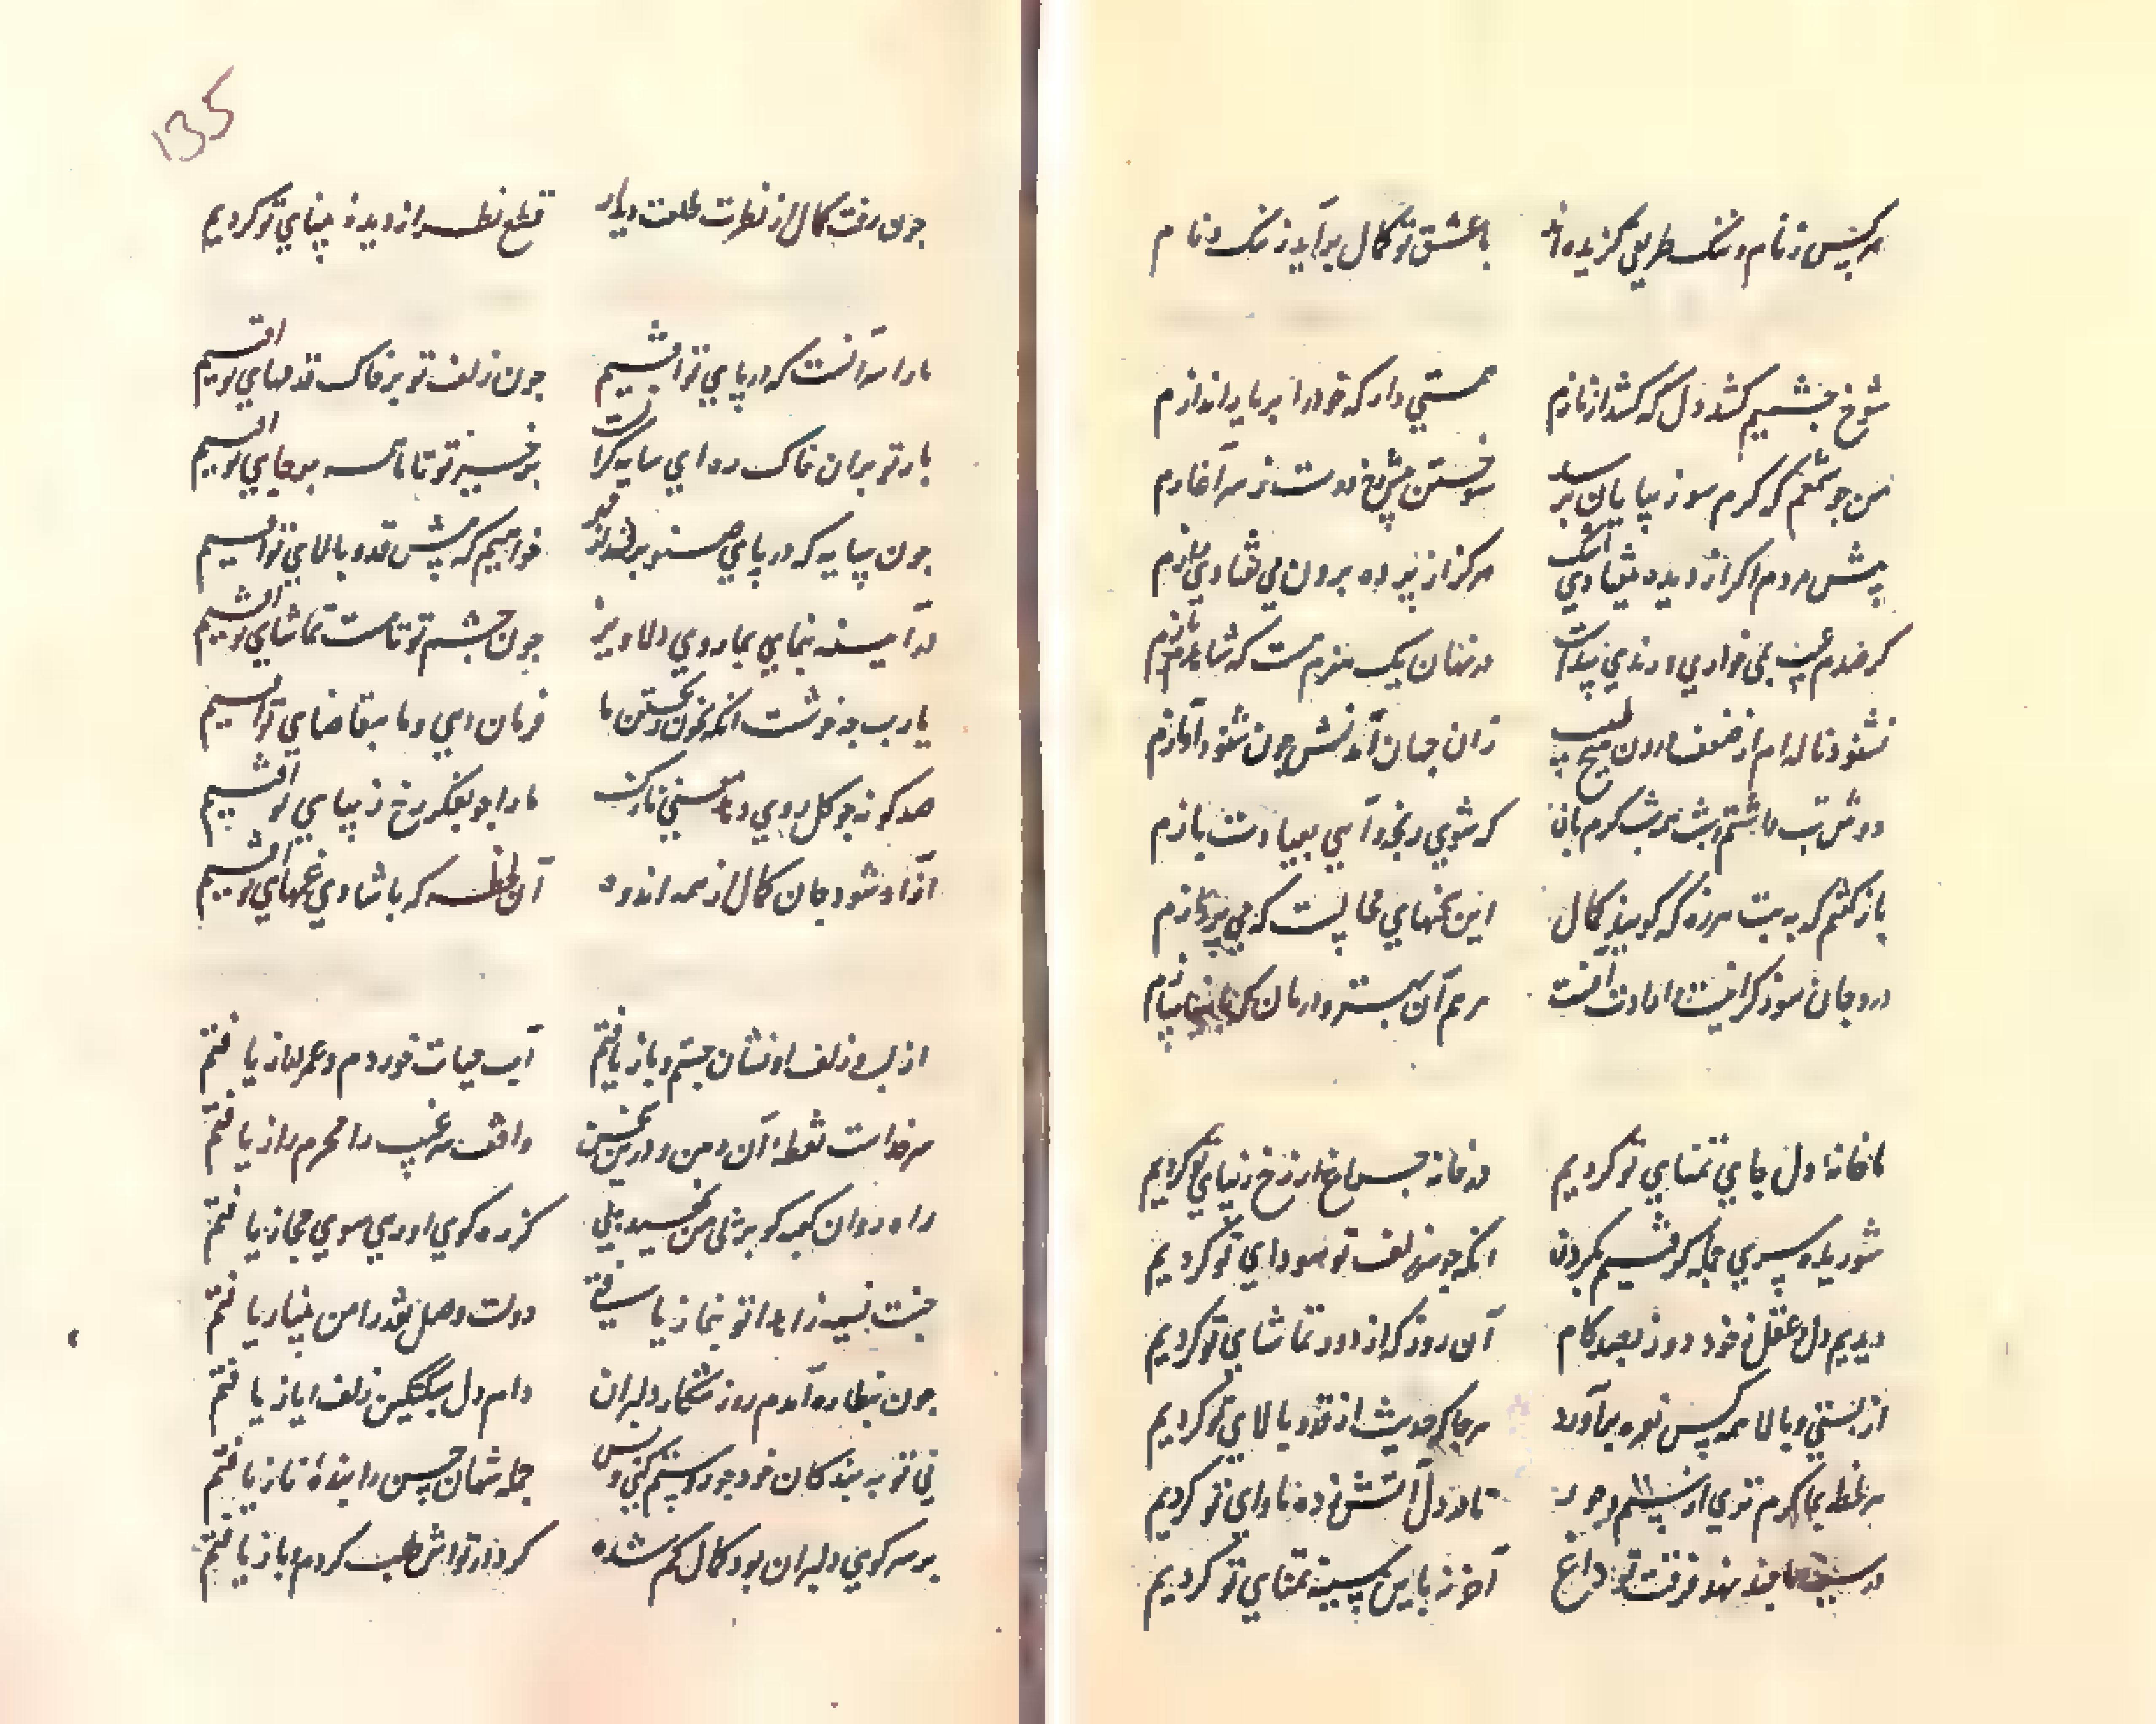 هر کس ز نام و ننک طریقی کزیده‌اند با عشق تو کمال برآید ز ننک و نام
شوخ چشمیم کشد دل که کشد از نازم مستیی دار که خود را بر ما اندازم
من جو شمعم که کرم سوز بپایان برسد سوختن پیش رخ دوست ز سر آغازم
پیش مردم اکر از دیده نیفتادی اشک هرکز از پرده برون می نفتادی رازم
کر خدم عیب بمی خواری و رندی پیداست در نهان یک هنرم هست که شاهد بازم
نشنود ناله‌ام از ضعف درون هیچ طبیب زان بجان آمدنش چون شنود آوازم
دوش تب داشتم و شربت کرم باز کر شوی رنجه و آیی بعیادت بازم
باز کفتم که به بیت هرزه که کوید کمال این سخنهای محالیست که می پردازم
درد جان سوز کرانیست اما دت آنست مرهم آن بهتر و درمان که
ما خانهٔ دل جای تمنای تو کردیم در خانه چراغ از رخ زیبای تو کردیم
شوریده‌سری جمله کرفتیم بکردن آنکه جو سر زلف تو سودای تو کردیم
دیدیم دل و عقل ز خود دور بصد کام آن روز که از دور تماشای تو کردیم
از پستی و بالا همه کس نعره برآورد هرجا که حدیث از قد و بالای تو کردیم
هر لحظه بجا کرم تری از تا در دل آتش زده ماوای تو کردیم
در سینهٔ ما چند نهد فرقت تو داغ آخر نه باین سینه تمنای تو کردیم
135
چون رفت کمال از نظرت طلعت دیدار قطع نظر از دیدهٔ بینای تو کردیم
ما را سر آنست که در پای تو افتیم چون زلف تو بر خاک قدمهای تو افتیم
بار تو بران خاک ره ای سایه کرانست برخیز تو تا ما همه بر جای تو افتیم
چون سایه که در پای صنوبر فتد از نور خواهیم که پیش قد و بالای تو افتیم
در آینه بنمای بما روی دلاویز چون چشم تو تا مست تماشای تو افتیم
یا رب چه خوشست آنکه بخون ریختن ما فرمان دهی و ما بتقاضای تو افتیم
صد کونه چو کل روی دهد حسنی نازک ما را چو بفکر رخ زیبای تو افتیم
آزاد شود جان کمال از همه اندوه آن لحظه که با شادی غمهای تو افتیم
از لب و زلف او نشان جستم و باز یافتم آب حیات خوردم و عمر دراز یافتم
سر خداست نقطهٔ آن دهن و درین سخن واقف سر غیب را محرم راز یافتم
راه روان کعبه کو بر پی من نهید پی کز ره کوی او رهی سوی حجاز یافتم
جنت نسیه زاهدا تو بنماز یافتی دولت وصل نقد را من بنیاز یافتم
چون بنظاره آمدم روز شکار دلبران دام دل سبکتکین زلف ایاز یافتم
نی تو به بندکان خود جور و ستم کنی و بس جمله شهان حسن را بندهٔ ناز یافتم
بر سر کوی دلبران بود کمال کم شده کرد در تواش طلب کردم و باز یافتم